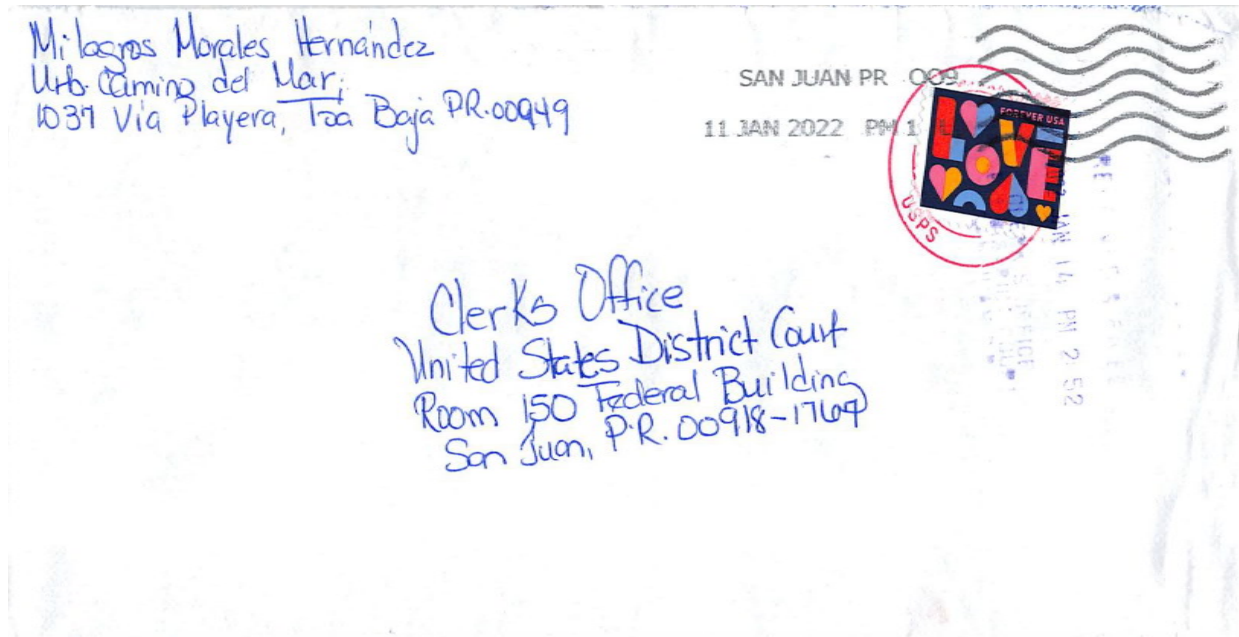 Milagros Morales Hernández
Urb. Camino del Mar;
1037 Vía Playera, Toa Baja PR.00949
SAN JUAN PR 009
11 JAN 2022 PM 1
FOREVER USA
LOVE
USPS
JAN 14 PM 2 52
Clerks Office
United States District Court
Room 150 Federal Building
San Juan, P.R. 00918-1767